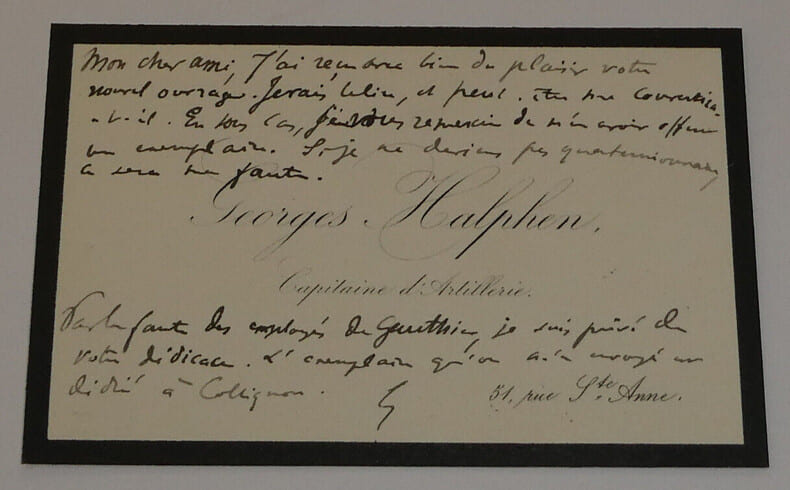 Mon cher ami, J'ai reçu avec bien du plaisir votre
nouvel ouvrage. Je vais le lire, et peut-être me convertira-
-t-il. En tous cas, je vous remercie de m'en avoir offert
un exemplaire. Si je ne deviens pas quaternionneux
ce sera ma faute.
Georges Halphen.
Capitaine d'Artillerie.
Par la faute des employés de Gauthier, je suis privé de
votre dédicace. L'exemplaire qu'on m'a envoyé est
dédié à Collignon.
51, rue Ste Anne.